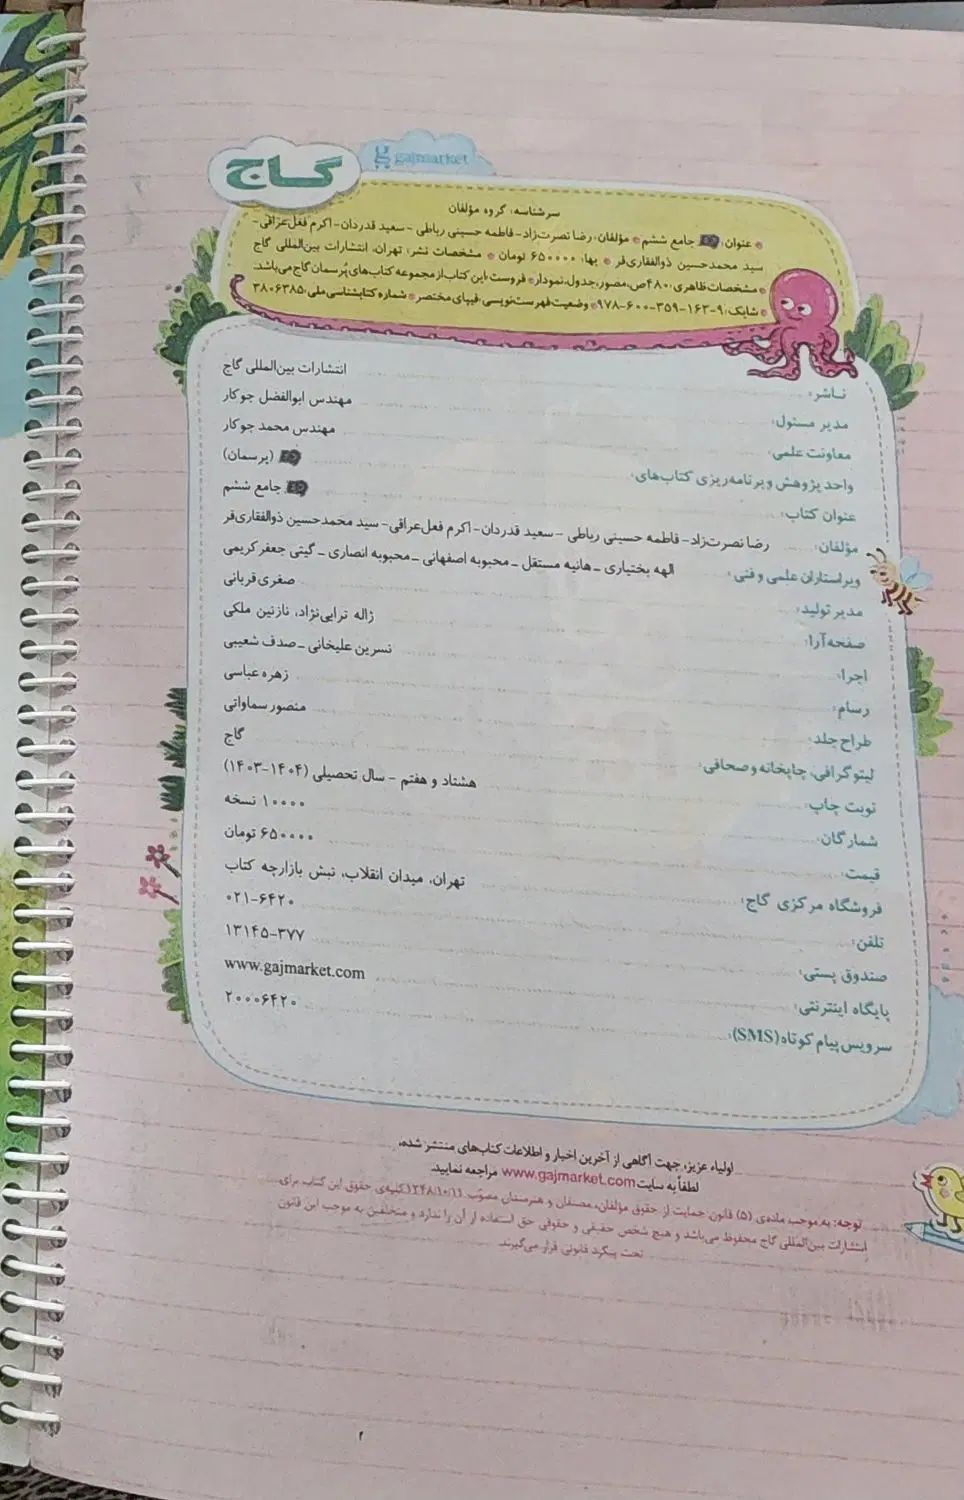 گاج
gajmarket
سرشناسه: گروه مؤلفان
عنوان: جامع ششم • مؤلفان: رضا نصرت‌زاد- فاطمه حسینی رباطی - سعید قدردان- اکرم فعل‌عراقی-
سید محمدحسین ذوالفقاری‌فر • بها: ۶۵۰۰۰۰ تومان • مشخصات نشر: تهران، انتشارات بین‌المللی گاج
• مشخصات ظاهری: ۴۸۰ص، مصور، جدول، نمودار • فروست: این کتاب از مجموعه کتاب‌های پُرسمان گاج می‌باشد.
• شابک: ۹-۱۶۳-۳۵۹-۶۰۰-۹۷۸ • وضعیت فهرست‌نویسی: فیپای مختصر • شماره کتابشناسی ملی: ۳۸۰۶۳۸۵
ناشر: انتشارات بین‌المللی گاج
مدیر مسئول: مهندس ابوالفضل جوکار
معاونت علمی: مهندس محمد جوکار
واحد پژوهش و برنامه‌ریزی کتاب‌های: (پرسمان)
عنوان کتاب: جامع ششم
مؤلفان: رضا نصرت‌زاد- فاطمه حسینی رباطی - سعید قدردان- اکرم فعل‌عراقی- سید محمدحسین ذوالفقاری‌فر
ویراستاران علمی و فنی: الهه بختیاری - هانیه مستقل - محبوبه اصفهانی - محبوبه انصاری - گیتی جعفر کریمی
مدیر تولید: صغری قربانی
صفحه‌آرا: ژاله ترابی‌نژاد، نازنین ملکی
اجرا: نسرین علیخانی - صدف شعیبی
رسام: زهره عباسی
طراح جلد: منصور سماواتی
لیتوگرافی، چاپخانه و صحافی: گاج
نوبت چاپ: هشتاد و هفتم - سال تحصیلی (۱۴۰۴-۱۴۰۳)
شمارگان: ۱۰۰۰۰ نسخه
قیمت: ۶۵۰۰۰۰ تومان
فروشگاه مرکزی گاج: تهران، میدان انقلاب، نبش بازارچه کتاب
تلفن: ۰۲۱-۶۴۲۰
صندوق پستی: ۱۳۱۴۵-۳۷۷
پایگاه اینترنتی: www.gajmarket.com
سرویس پیام کوتاه (SMS): ۲۰۰۰۶۴۲۰
اولیاء عزیز، جهت آگاهی از آخرین اخبار و اطلاعات کتاب‌های منتشر شده،
لطفاً به سایت www.gajmarket.com مراجعه نمایید.
توجه: به موجب ماده‌ی (۵) قانون حمایت از حقوق مؤلفان، مصنفان و هنرمندان مصوّب ۱۳۴۸/۱۰/۱۱ کلیه‌ی حقوق این کتاب برای
انتشارات بین‌المللی گاج محفوظ می‌باشد و هیچ شخص حقیقی و حقوقی حق استفاده از آن را ندارد و متخلفین به موجب این قانون
تحت پیگرد قانونی قرار می‌گیرند.
۲